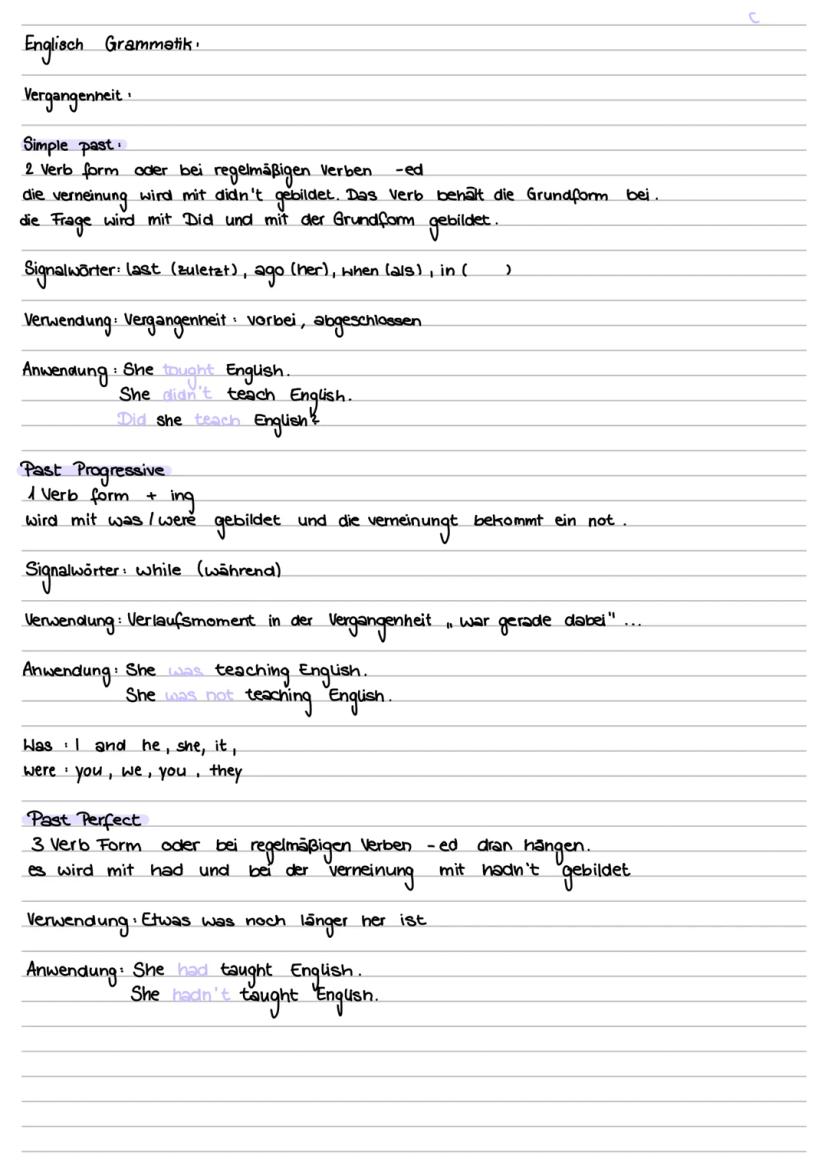 C
Englisch Grammatik:
Vergangenheit:
Simple past:
2 Verb form oder bei regelmäßigen Verben -ed
die verneinung wird mit didn't gebildet. Das Verb behält die Grundform bei.
die Frage wird mit Did und mit der Grundform gebildet.
Signalwörter: last (zuletzt), ago (her), when (als), in ( )
Verwendung: Vergangenheit: vorbei, abgeschlossen
Anwendung: She tought English.
She didn't teach English.
Did she teach English?
Past Progressive
1 Verb form + ing
wird mit was / were gebildet und die verneinungt bekommt ein not.
Signalwörter: while (während)
Verwendung: Verlaufsmoment in der Vergangenheit „war gerade dabei" ...
Anwendung: She was teaching English.
She was not teaching English.
Was: I and he, she, it,
were: you, we, you, they
Past Perfect
3 Verb Form oder bei regelmäßigen Verben -ed dran hängen.
es wird mit had und bei der verneinung mit hadn't gebildet
Verwendung: Etwas was noch länger her ist
Anwendung: She had taught English.
She hadn't taught English.